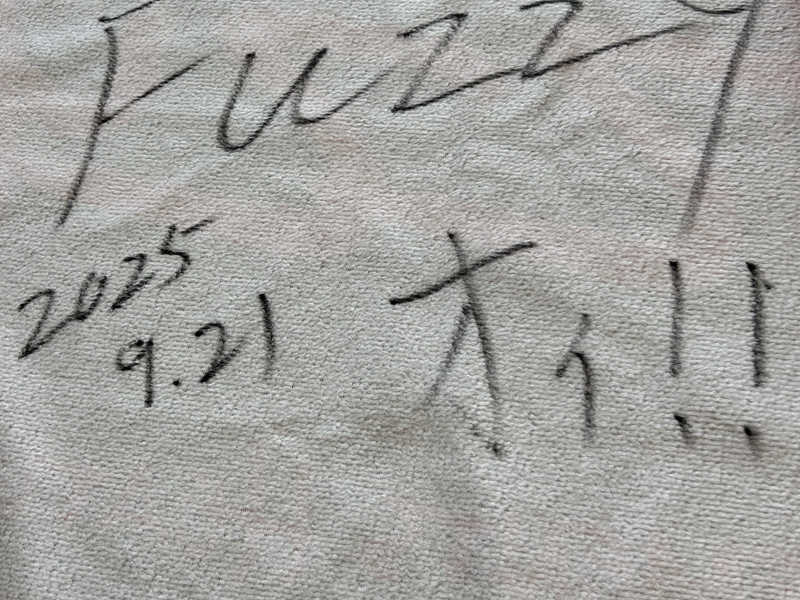 Fuzzy
2025
9.21
オイ!!